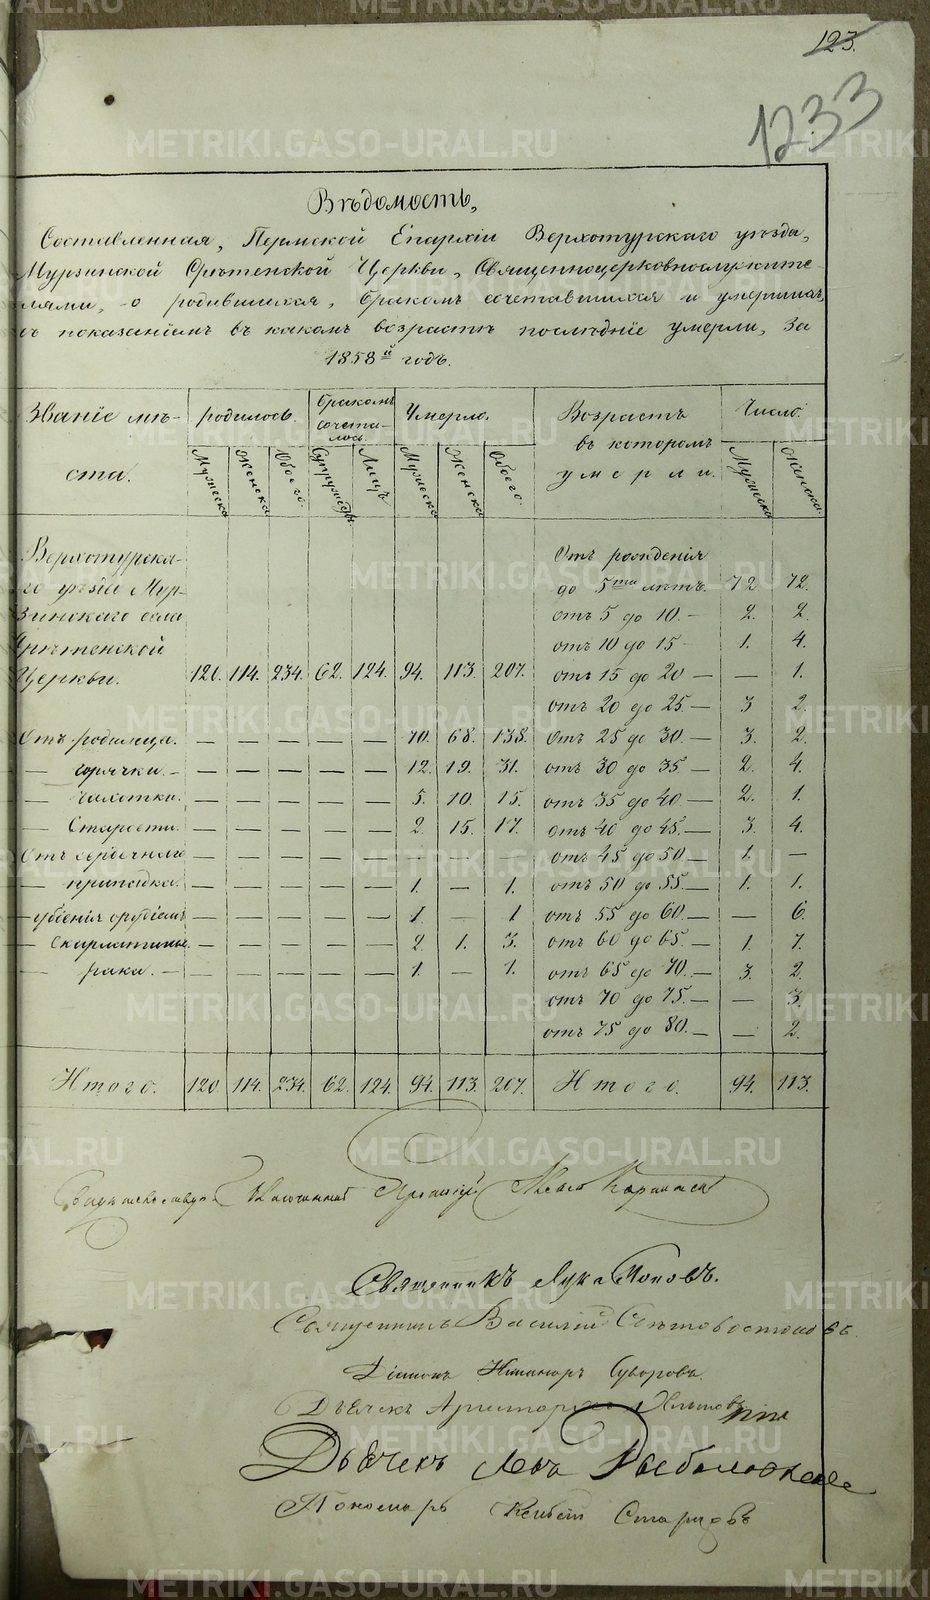 123.
1233
Вѣдомость,
Составленная, Пермской Епархіи Верхотурскаго уѣзда,
Мурзинской Срѣтенской Церкви, Священноцерковнослужите-
лями, о родившихся, бракомъ сочетавшихся и умершихъ,
съ показаніемъ въ какомъ возрастѣ послѣдніе умерли, За
1858й годъ.
Званіе мѣ- ста. родилось. бракомъ сочета- лось. Умерло. Возрастъ въ которомъ умерли. Число.
Мужеска Женска Обоего. Супружествъ Лицъ Мужеска Женска Обоего. Мужеска Женска.
Верхотурска- Отъ рожденія
го уѣзда Мур- до 5ти лѣтъ. 72 72.
зинскаго села отъ 5 до 10.- 2. 2.
Срѣтенской отъ 10 до 15- 1. 4.
Церкви. 120. 114. 234. 62. 124. 94. 113. 207. отъ 15 до 20 — — 1.
отъ 20 до 25.— 3 2.
Отъ родимца. — — — — — 70. 68. 138. Отъ 25 до 30.— 3. 2.
— горячки.- — — — — — 12. 19. 31. отъ 30 до 35.— 2. 4.
— Чахотки. — — — — — 5. 10. 15. отъ 35 до 40.— 2. 1.
— Старости. — — — — — 2. 15. 17. отъ 40 до 45.— 3. 4.
Отъ сердечнаго — — — — — — — — отъ 45 до 50.— 1. —
— припадка. — — — — — 1. — 1. отъ 50 до 55.— 1. 1.
— убіенія орудіемъ — — — — — 1. — 1 отъ 55 до 60.— — 6.
— Скарлатины — — — — — 2. 1. 3. отъ 60 до 65.— 1. 7.
— рака.— — — — — — 1. — 1. отъ 65 до 70.— 3. 2.
отъ 70 до 75.— — 3.
отъ 75 до 80.— — 2.
Итого. 120 114. 234. 62. 124. 94. 113. 207. Итого. 94. 113.
Священникъ Лука Поповъ.
Священникъ Василій
Діаконъ Суворовъ.
Дьячекъ Аристархъ
Дьячекъ Левъ
Пономарь
METRIKI.GASO-URAL.RU